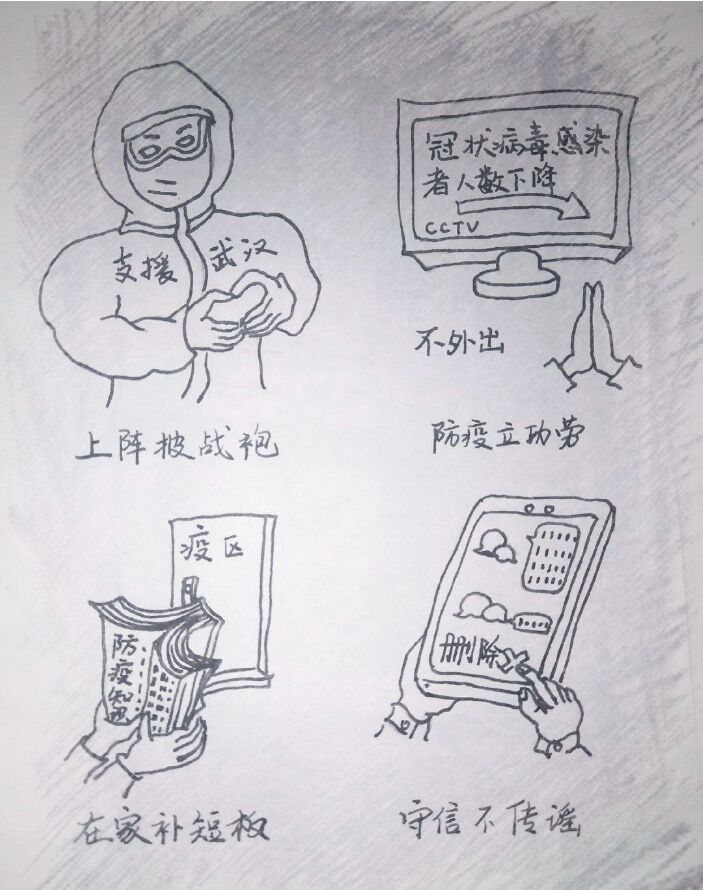 支援 武汉
上阵披战袍
冠状病毒感染
者人数下降
CCTV
不外出
防疫立功劳
疫区
防疫知识
在家补短板
删除
守信不传谣